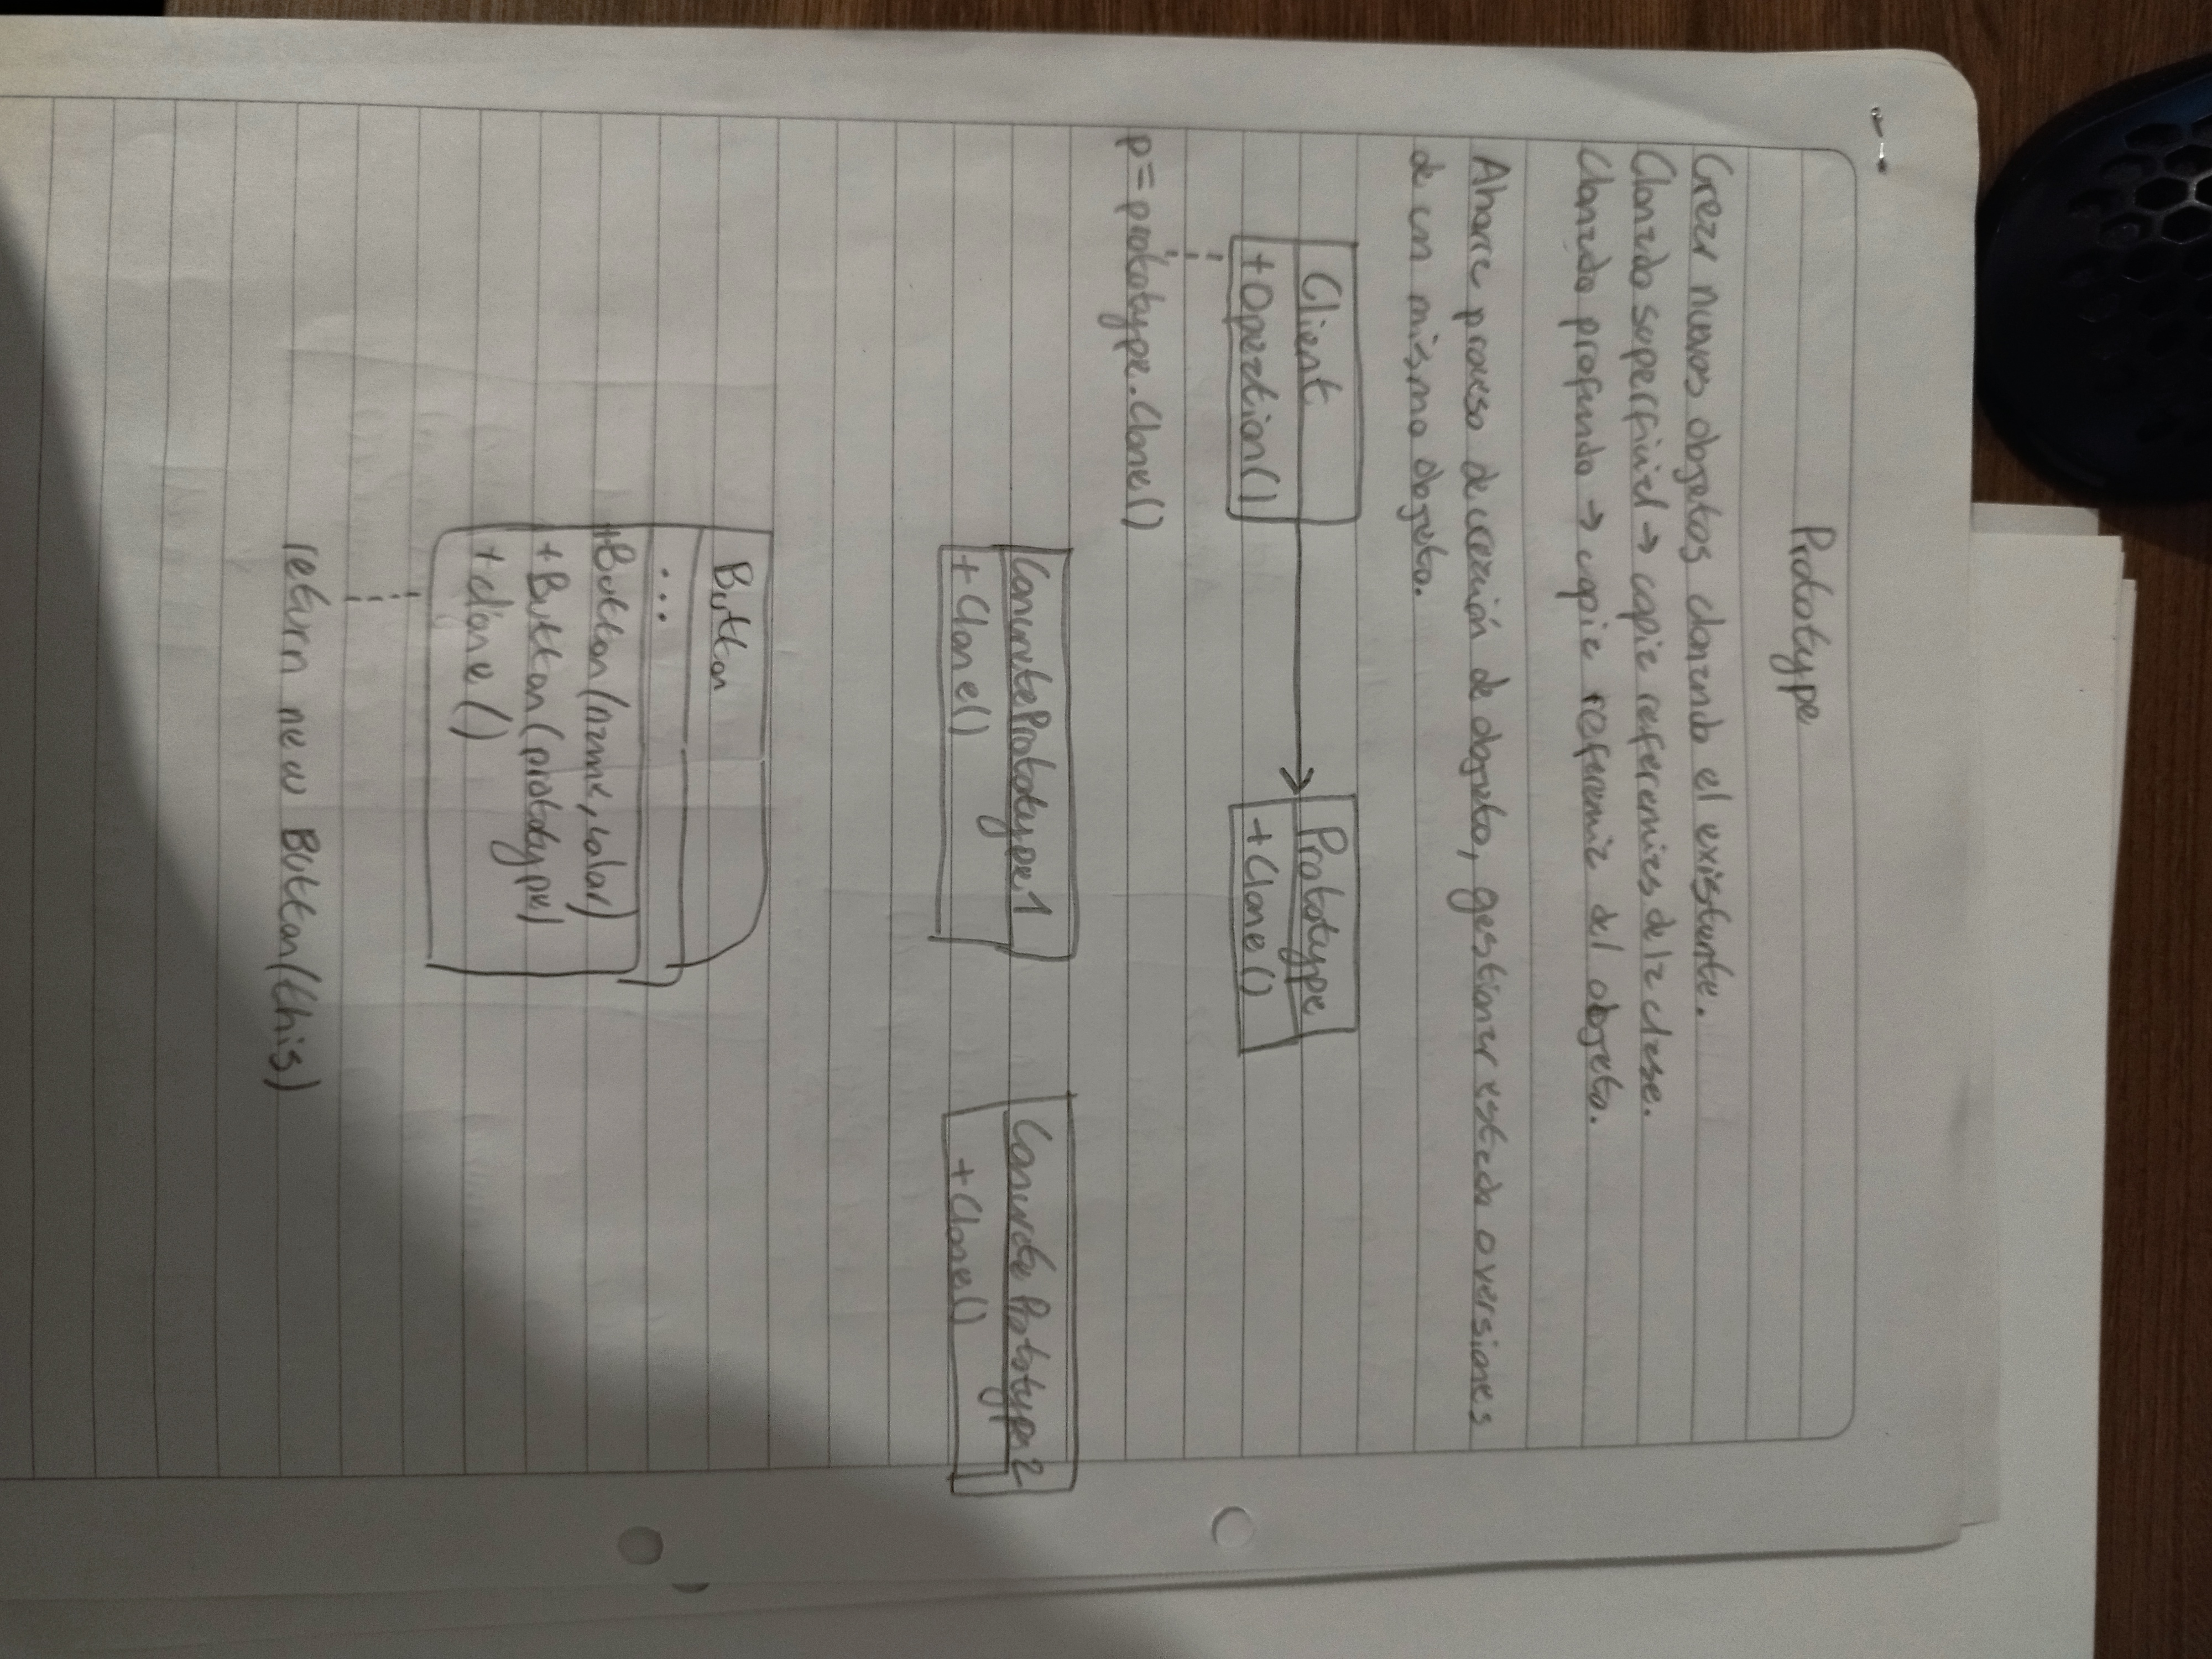 Prototype
Crear nuevos objetos clonando el existente.
Clonado superficial → copia referencias de la clase.
Clonado profundo → copia referencia del objeto.
Ahorra proceso de creación de objeto, gestionar estado o versiones
de un mismo objeto.
Client
Prototype
+Operation()
+Clone()
p=prototype.Clone()
ConcretePrototype1
ConcretePrototype2
+Clone()
+Clone()
Button
...
+Button(name, color)
+Button(prototype)
+clone()
return new Button(this)